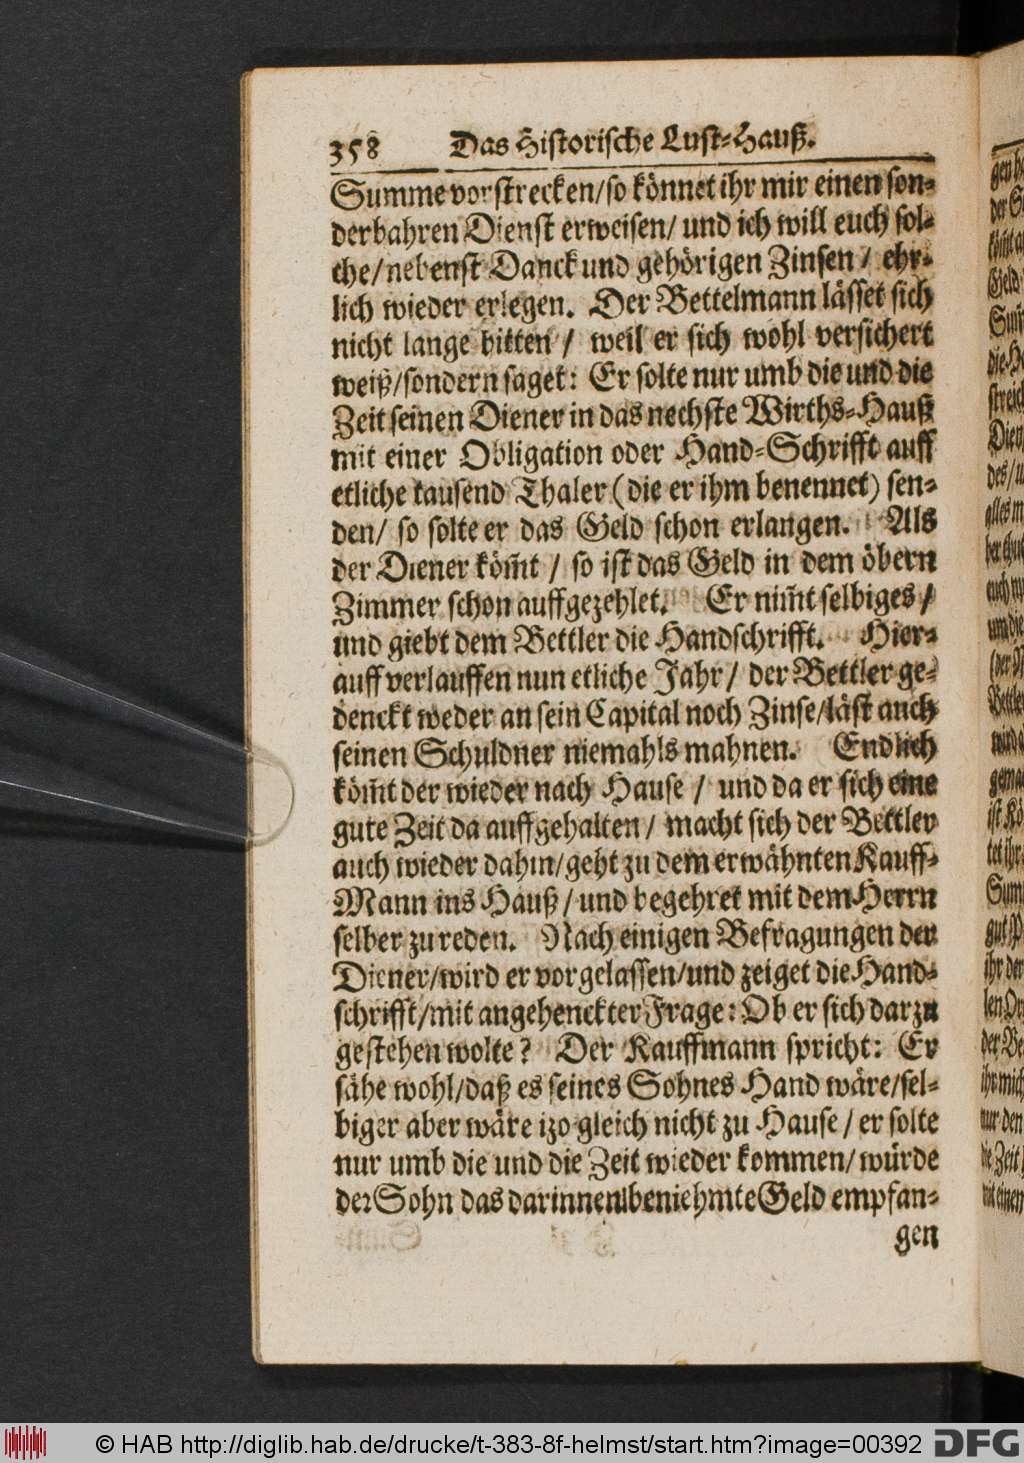 358 Das Historische Lust-Hauß.
Summe vorstrecken/so könnet ihr mir einen son-
derbahren Dienst erweisen/ und ich will euch sol-
che/nebenst Danck und gehörigen Zinsen / ehr-
lich wieder erlegen. Der Bettelmann lässet sich
nicht lange bitten / weil er sich wohl versichert
weiß/sondern saget: Er solte nur umb die und die
Zeit seinen Diener in das nechste Wirths-Hauß
mit einer Obligation oder Hand-Schrifft auff
etliche tausend Thaler (die er ihm benennet) sen-
den/ so solte er das Geld schon erlangen. Als
der Diener köm̃t / so ist das Geld in dem öbern
Zimmer schon auffgezehlet. Er nim̃t selbiges /
und giebt dem Bettler die Handschrifft. Hier-
auff verlauffen nun etliche Jahr / der Bettler ge-
denckt weder an sein Capital noch Zinse/läst auch
seinen Schuldner niemahls mahnen. Endlich
köm̃t der wieder nach Hause / und da er sich eine
gute Zeit da auffgehalten / macht sich der Bettler
auch wieder dahin/geht zu dem erwähnten Kauff-
Mann ins Hauß / und begehret mit dem Herrn
selber zu reden. Nach einigen Befragungen der
Diener/wird er vorgelassen/und zeiget die Hand-
schrifft/mit angehenckter Frage: Ob er sich darzu
gestehen wolte? Der Kauffmann spricht: Er
sähe wohl/daß es seines Sohnes Hand wäre/sel-
biger aber wäre izo gleich nicht zu Hause / er solte
nur umb die und die Zeit wieder kommen/ würde
der Sohn das darinnen beniehmte Geld empfan-
gen
© HAB http://diglib.hab.de/drucke/t-383-8f-helmst/start.htm?image=00392
DFG